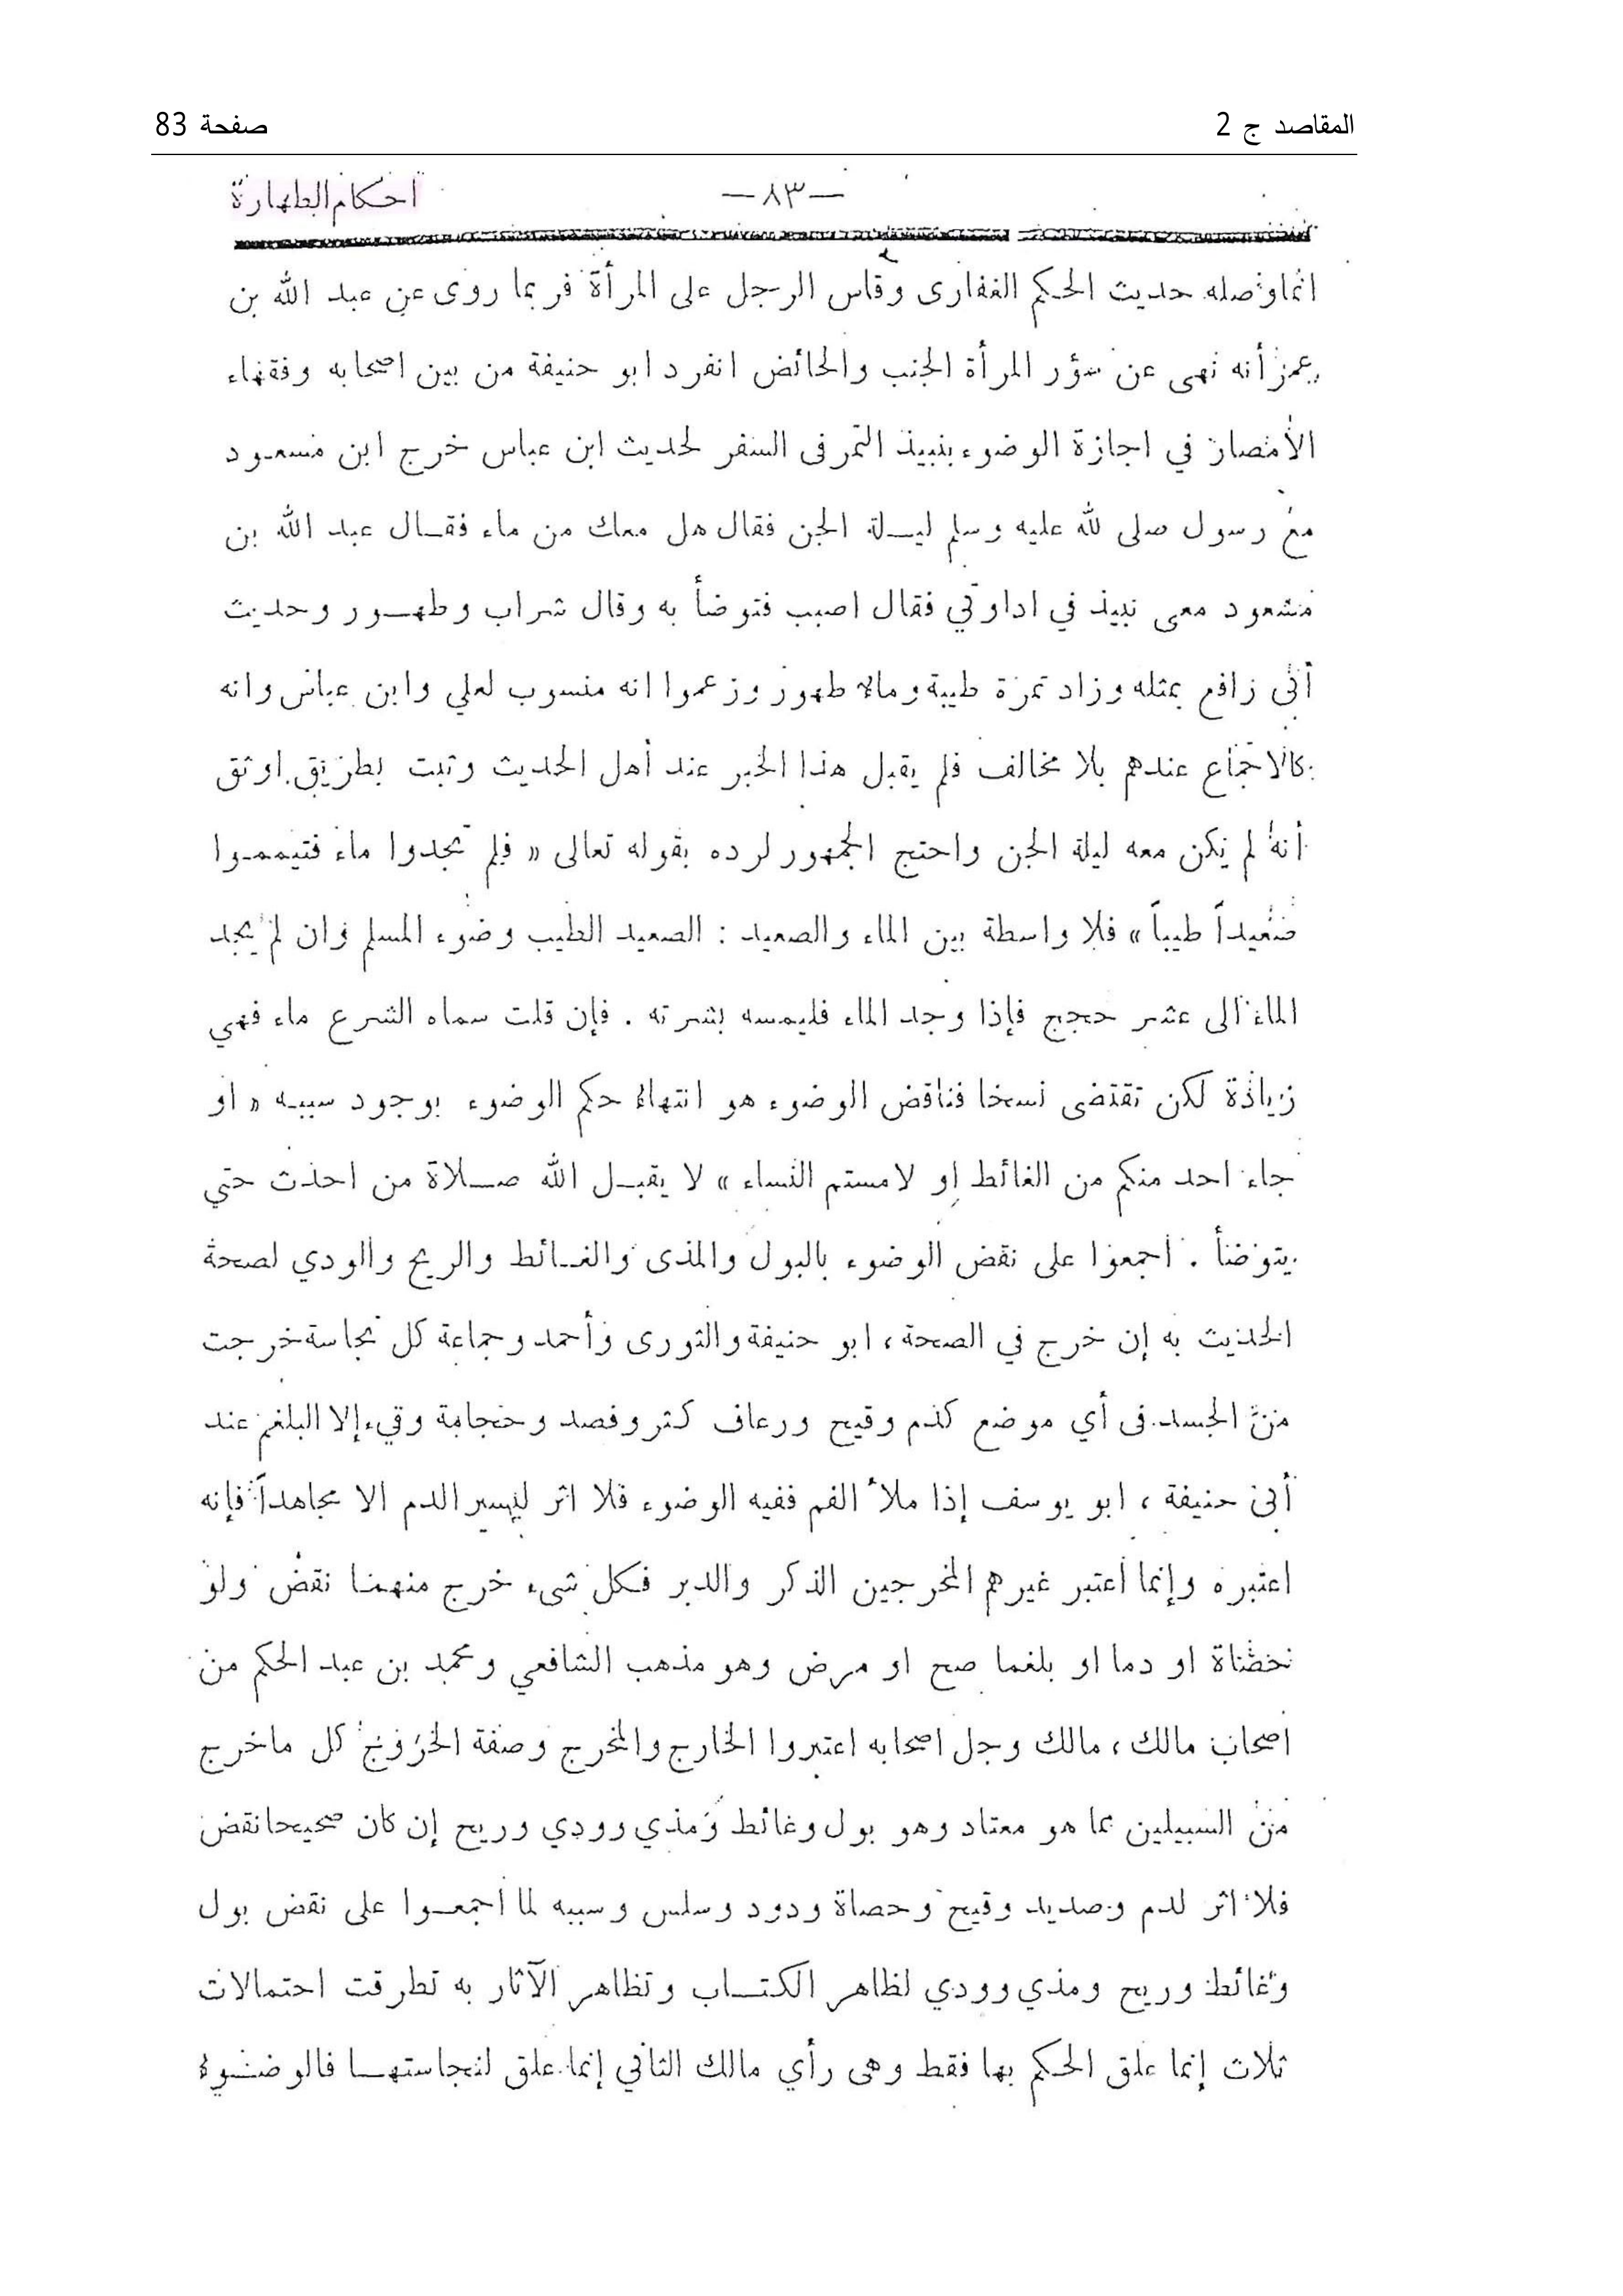 المقاصد ج 2 صفحة 83
—٨٣— احكام الطهارة
انما وصله حديث الحكم الغفارى وقاس الرجل على المرأة فربما روى عن عبد الله بن
عمر أنه نهى عن سؤر المرأة الجنب والحائض انفرد ابو حنيفة من بين اصحابه وفقهاء
الأمصار في اجازة الوضوء بنبيذ التمر فى السفر لحديث ابن عباس خرج ابن مسعود
مع رسول صلى لله عليه وسلم ليلة الجن فقال هل معك من ماء فقال عبد الله بن
مسعود معى نبيذ في اداوتي فقال اصبب فتوضأ به وقال شراب وطهور وحديث
أبى رافع بمثله وزاد تمرة طيبة وماء طهور وزعموا انه منسوب لعلي وابن عباس وانه
كالاجماع عندهم بلا مخالف فلم يقبل هذا الخبر عند أهل الحديث وثبت بطريق اوثق
أنه لم يكن معه ليلة الجن واحتج الجمهور لرده بقوله تعالى « فلم تجدوا ماء فتيمموا
صعيداً طيباً » فلا واسطة بين الماء والصعيد : الصعيد الطيب وضوء المسلم وان لم يجد
الماء الى عشر حجج فإذا وجد الماء فليمسه بشرته . فإن قلت سماه الشرع ماء فهي
زيادة لكن تقتضى نسخا فناقض الوضوء هو انتهاء حكم الوضوء بوجود سببه « او
جاء احد منكم من الغائط او لامستم النساء » لا يقبل الله صلاة من احدث حتي
يتوضأ . اجمعوا على نقض الوضوء بالبول والمذى والغائط والريح والودي لصحة
الحديث به إن خرج في الصحة ، ابو حنيفة والثورى وأحمد وجماعة كل نجاسة خرجت
من الجسد فى أي موضع كدم وقيح ورعاف كثر وفصد وحجامة وقيء إلا البلغم عند
أبى حنيفة ، ابو يوسف إذا ملأ الفم ففيه الوضوء فلا اثر ليسير الدم الا مجاهداً فإنه
اعتبره وإنما أعتبر غيرهم المخرجين الذكر والدبر فكل شىء خرج منهما نقض ولو
حصاة او دما او بلغما صح او مرض وهو مذهب الشافعي ومحمد بن عبد الحكم من
اصحاب مالك ، مالك وجل اصحابه اعتبروا الخارج والمخرج وصفة الخروج كل ما خرج
من السبيلين مما هو معتاد وهو بول وغائط ومذي وودي وريح إن كان صحيحا نقض
فلا اثر لدم وصديد وقيح وحصاة ودود وسلس وسببه لما اجمعوا على نقض بول
وغائط وريح ومذي وودي لظاهر الكتاب وتظاهر الآثار به تطرقت احتمالات
ثلاث إنما علق الحكم بها فقط وهى رأي مالك الثاني إنما علق لنجاستها فالوضوء